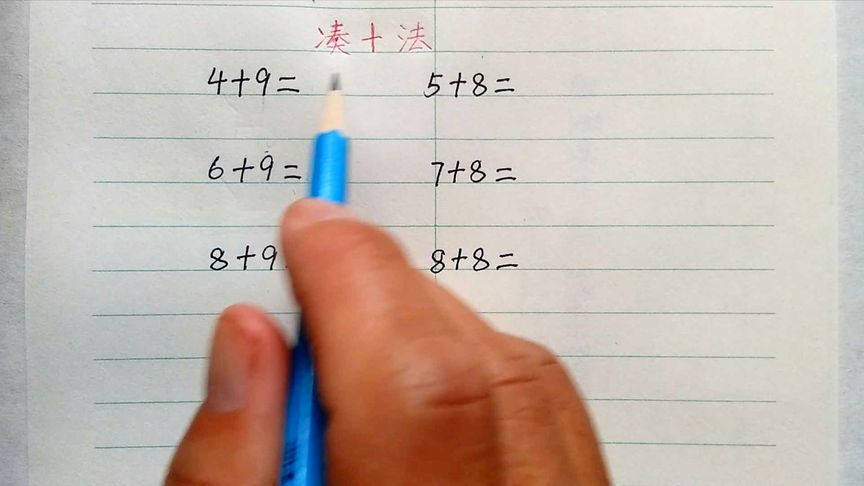 凑十法
4+9= 5+8=
6+9= 7+8=
8+9 8+8=